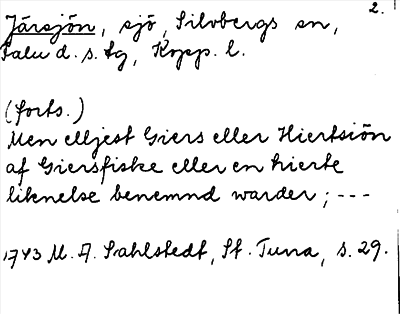 2.
Järsjön, sjö, Silvbergs sn,
Falu d.s. tg, Kopp. l.
(forts.)
Men elljest Giers eller Hiertsiön
af Giersfiske eller en hierte
liknelse benemnd warder; ---
1743 M. A. Sahlstedt, St. Tuna, s. 29.